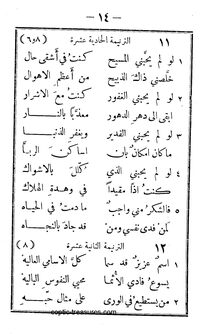 — ١٤ —
١١ الترنيمة الحادية عشرة (٨و٦)
١ لو لم يحبني المسيح كنت في أشقى حال
خلصني ذاك الذبيح من أعظم الاهوال
٢ لو لم يحبني الغفور كنت مع الاشرار
ابقى الى دهر الدهور معذبا بالنار
٣ لو لم يحبني القدير ويغفر الذنبا
ما كان امكان بان اساكن الربا
٤ لو لم يحبني الذي كلل بالاشواك
كنت اذا مقيدا في وهدة الهلاك
٥ فالشكر مني واجب ما دمت في الحياه
لمن فدى نفسي ومن قد جاد بالنجاه
١٢ الترنيمة الثانية عشرة (٨)
١ اسم عزيز قد سما كل الاسامي العاليه
يسوع فادي الأنما محيي النفوس الباليه
٢ من يستطيع في الورى على مثال حبه
coptic-treasures.com